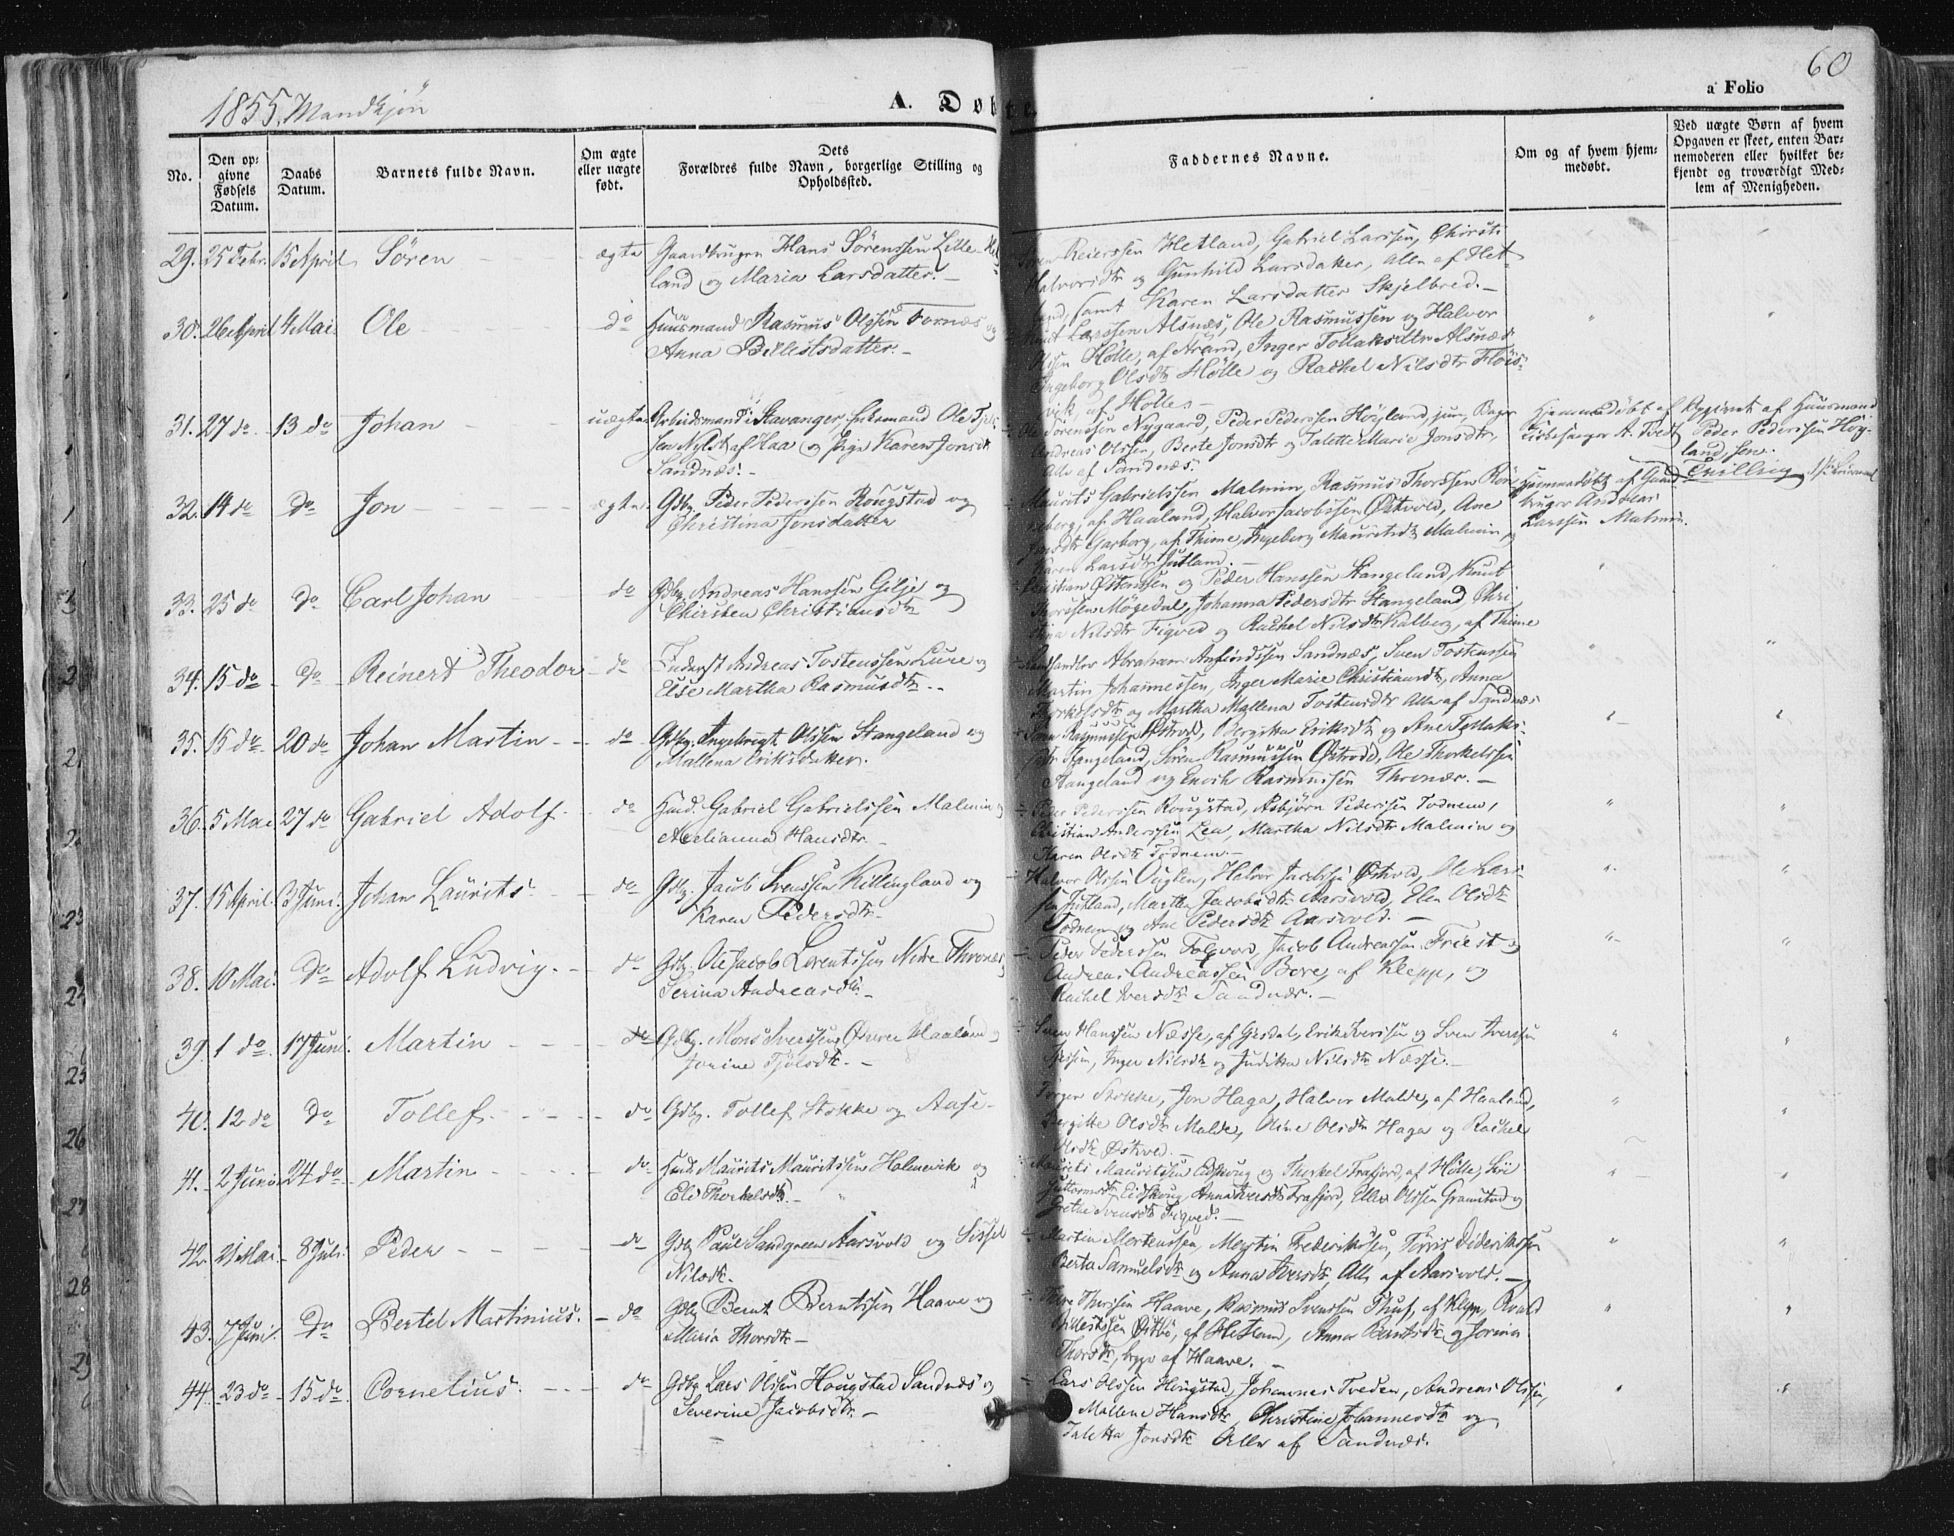 60
1855. Mandkjøn
A. Døbte.
a Folio
No.
Den opgivne Fødsels Datum.
Daabs Datum.
Barnets fulde Navn.
Om ægte eller uægte født.
Dets Forældres fulde Navn, borgerlige Stilling og Opholdssted.
Faddernes Navne.
Om og af hvem hjemmedøbt.
Ved uægte Børn af hvem Opgaven er skeet, enten Barnemoderen eller hvilket bekjendt og troværdigt Medlem af Menigheden.
29. 25 Febr. 15 April Søren ægte Gaardbruger Hans Sørenssen Lille Het
land og Maria Larsdatter.
Reierssen Hetland, Gabriel Larssen, Christi
Halvorsdtr og Gunhild Larsdatter, Alle af Het
land, samt Karen Larsdatter Skjelbred.
30. 26 April 4 Mai Ole do Huusmand Rasmus Olssen Fornæs og
Anna Billestsdatter.
Knut Larssen Alsnæs, Ole Rasmussen og Halvor
Olssen Hölle, af Strand, Inger Tollaksdtr Alsnæs
Ingeborg Olsdtr Hölle og Rachel Nilsdtr Fløis
vik af Hölle.
31. 27 do 13 do Johan uægte Arbeidsmand i Stavanger, Enkemand Ole Tjels
sen af Haa og Pige Karen Jonsdtr
Sandnæs.
Ole Sørenssen Nygaard, Peder Pederssen Høyland, jun, Bager
Andreas Olssen, Berte Jonsdtr og Talette Marie Jonsdtr,
Alle af Sandnæs.
Hjemmedøbt af
Kirkesanger A. Tvedt
Angivet af Huusmand
Peder Pederssen Høy
land, sen.
32. 14 do Do Jon ægte Gdbg. Peder Pederssen Rougstad og
Christina Jonsdatter
Maurits Gabrielssen Malmin, Rasmus Thorssen
af Haaland, Halvor Jacobssen Østvold, Ane
Jonsdtr Garborg, af Thime, Ingeborg Mauritsdtr Malmin,
Karen Larsdtr Jutland.
Hjemmedøbt af Gaard
bruger Andreas
Larssen Malmin.
Tvilling
33. 25 do Do Carl Johan do Gdbg. Andreas Hanssen Gilje og
Chirsten Christiansdtr
Christian Østenssen og Peder Hanssen Stangeland, Knut
Thorssen Møgedal, Johanna Pedersdtr Stangeland, Chri
stina Nilsdtr Figved og Rachel Nilsdtr Kalberg, af Thime
34. 15 do Do Reinert Theodor do Inderst Andreas Tostenssen Lure og
Else Martha Rasmusdtr.
Landhandler Abraham Anfindssen Sandnæs, Sven Tostenssen
Martin Johannessen, Inger Marie Christiansdtr, Anna
og Martha Mallena Tostensdtr Alle af Sandnæs
35. 15 do 20 do Johan Martin do Gdbg. Ingebrigt Olssen Stangeland og
Mallena Eriksdatter.
Rasmussen Østraad, Bergitta Eriksdtr og Ane Tollaks
dtr Stangeland, Sören Rasmussen Østrod, Ole Thorkelssen
Stangeland og Enoch Rasmussen Thronæs.
36. 5 Mai 27 do Gabriel Adolf do Huusd. Gabriel Gabrielssen Malmin og
Axelianna Hansdtr.
Peder Pederssen Rougstad, Asbjörn Pederssen Todnem,
Christian Anderssen Lea, Martha Nilsdtr Malmin og
Karen Olsdtr Todnem.
37. 15 April 3 Juni. Johan Laurits do Gdbg. Jacob Svenssen Killingland og
Karen Pedersdtr.
Halvor Olssen, Halvor Jacobssen Østvold, Ole Lars
sen Jutland, Martha Jacobsdtr Aarsvold, Elen Olsdtr
Todnem og Ane Pedersdtr Aarsvold.
38. 10 Mai. Do Adolf Ludvig. do Gdbg. Ole Jacob Lorentssen Nedre Thronæs
Serina Andreasdtr.
Peder Pederssen, Jacob Andreassen Friest og
Andreas Andreassen Bore, af Klepp, og
Rachel Iversdtr Sandnæs.
39. 1 do 17 Juni. Martin do Gdbg. Mons Iverssen Østver Haaland
Jorine Tjølsdtr.
Sven Hanssen Næsse, af Gjesdal, Erik Iverssen og Sven Iverssen
Inger Nilsdtr og Judika Nilsdtr Næsse.
40. 12 do Do Tollef do Gdbg. Tollef Stokke og Aase
Jørgen Stokke, Jon Haga, Halvor Malde, af Haaland,
Bergitte Olsdtr Malde, Oline Olsdtr Haga og Rachel
Olsdtr Østvold.
41. 2 Juni 24 do Martin do Huusd. Maurits Mauritssen Holmevik og
Eli Thorkelsdtr.
Maurits Mauritssen Eidskoug og Thorkel Frafjord, af Hölle, Seri
Guttormsdtr Eidskoug, Anna Iversdtr Frafjord, Ellen Olssen Gramstad og
Grethe Svensdtr Figved.
42. 21 Mai 8 Juli Peder do Gdbg. Paul Sandgreen Aarsvold og Sissel
Nilsdtr.
Martin Mortenssen, Martin Frederikssen, Tørris Dideriksen
Berta Samuelsdtr og Anna Iversdtr, Alle af Aarsvold.
43. 7 Juni. Do Bertel Martinius. do Gdbg. Bernt Berntssen Haave og
Maria Thorsdtr
Thore Thorssen Haave, Rasmus Svenssen Thu, af Klepp,
Billestssen Østbø, af Hetland, Anna Berntsdtr og Jorina
Thorsdtr, begge af Haave.
44. 23 do 15 do Cornelius. do Gdbg. Lars Olssen Hougstad Sandnæs og
Severine Jacobsdtr.
Lars Olssen Hougstad, Johannes Tveden, Andreas Olssen,
Mallene Hansdtr, Christine Johannesdtr og
Taletta Jonsdtr Alle af Sandnæs.